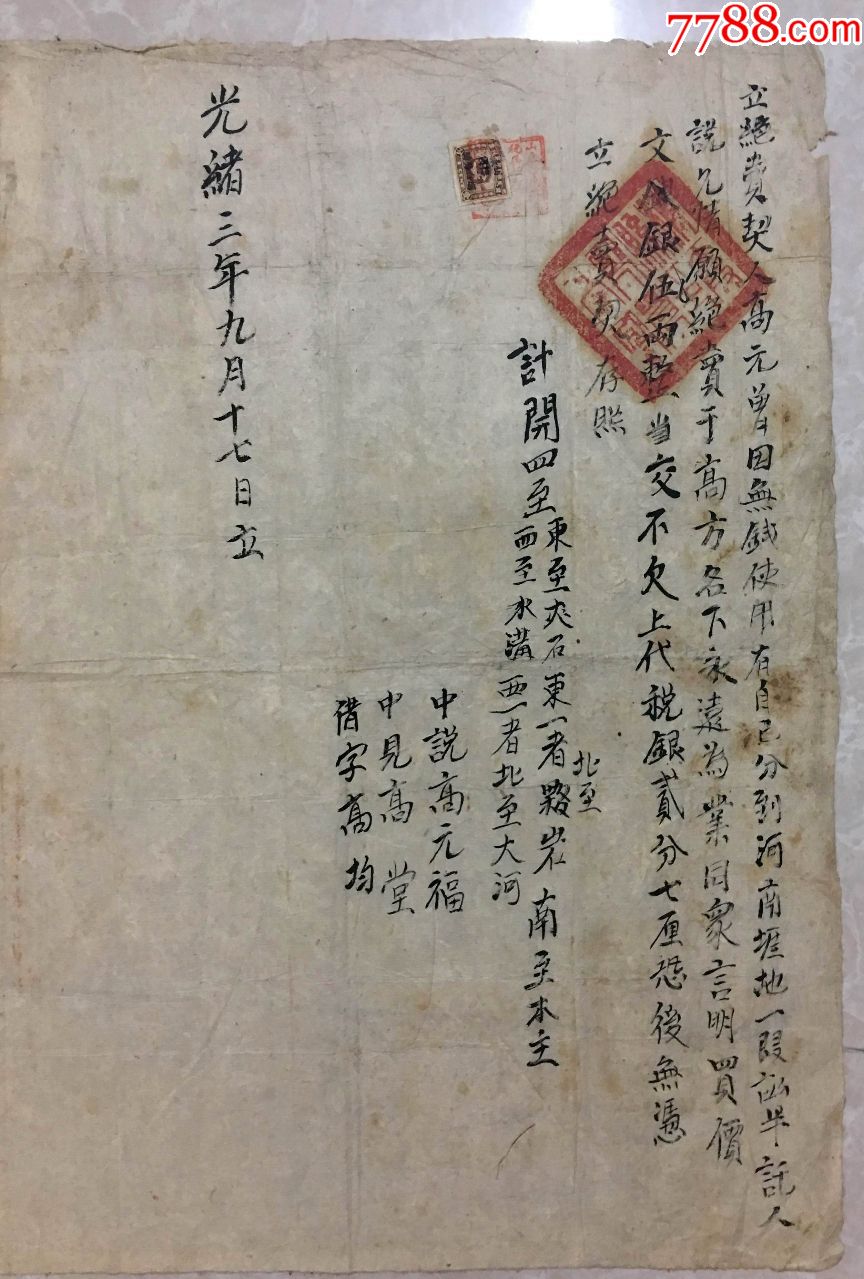 7788.com
立絕賣契人高元曽因無錢使用有自己分到河南堐地一段畝半託人
說允情願絕賣于高方名下永遠為業同衆言明買價
文銀伍兩整当交不欠上代稅銀貳分七厘恐後無憑
立絕賣契存照
計開四至
東至夾石東一者 南至本主
北至
西至水溝西一者北至大河
中説高元福
中見高堂
借字高均
光緒三年九月十七日立